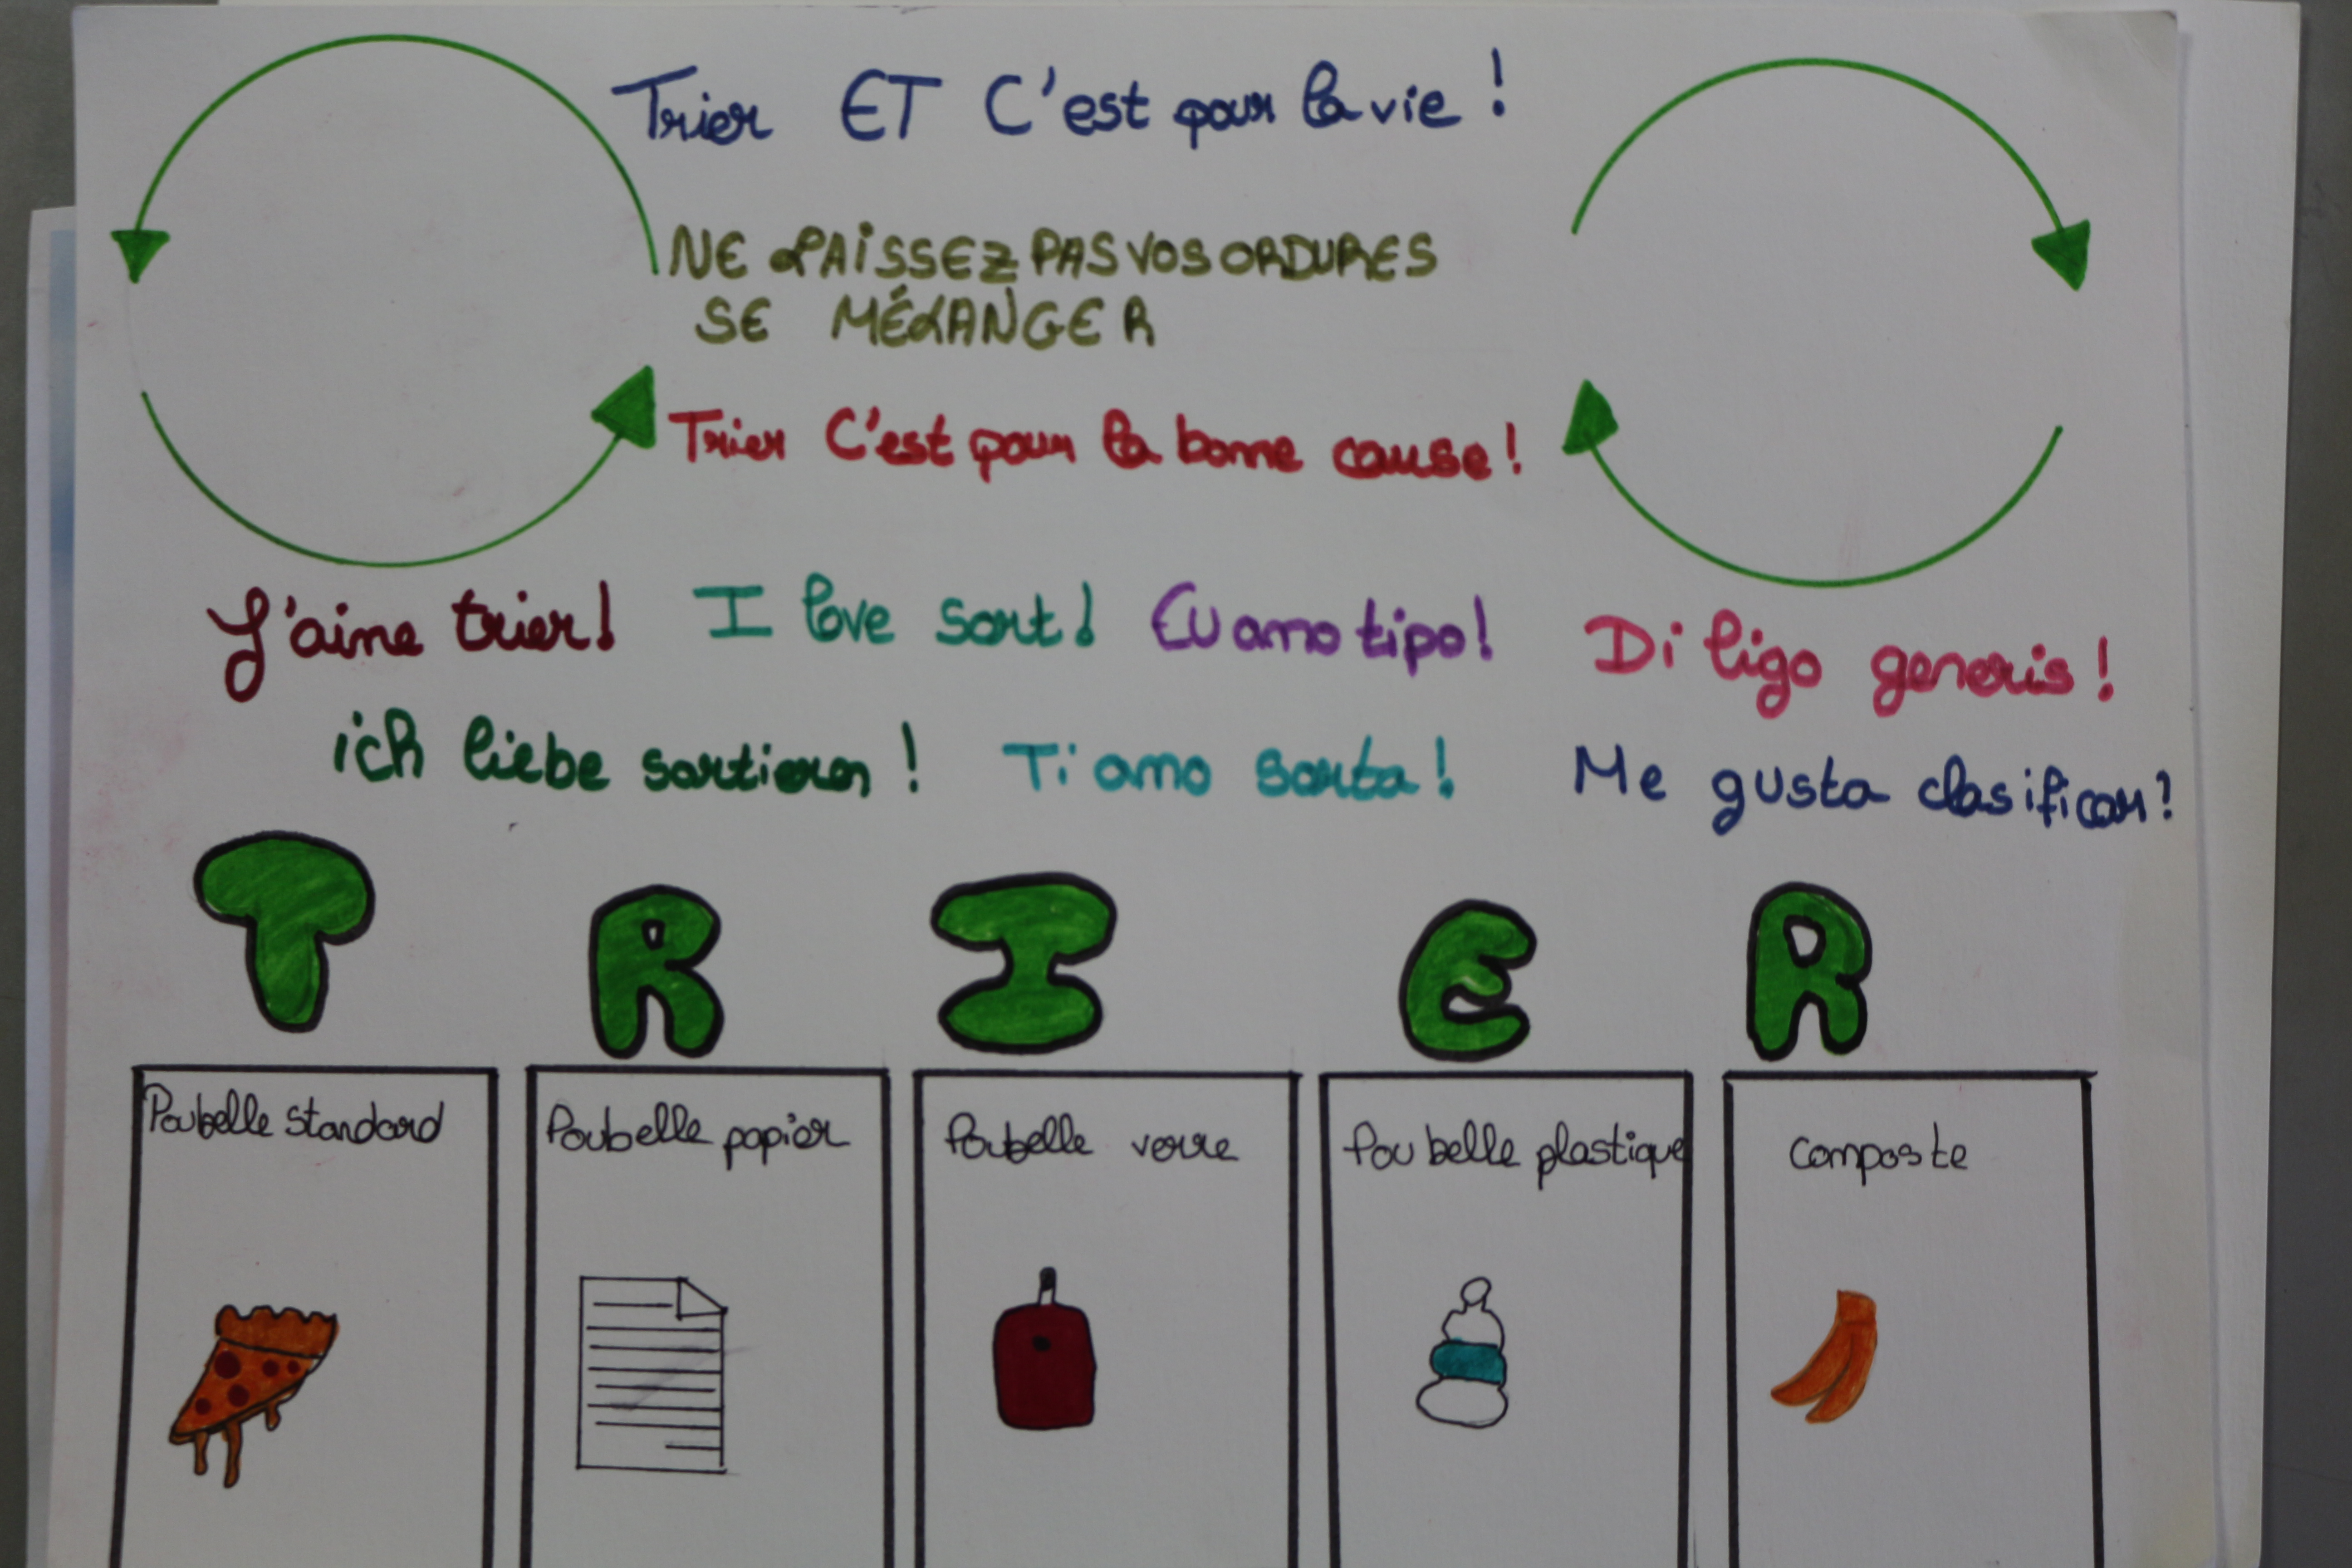 Trier ET C'est pour la vie !
NE LAISSEZ PAS VOS ORDURES
SE MÉLANGER
Trier C'est pour la bonne cause !
J'aime trier ! I love sort ! Eu amo tipo ! Diligo generis !
ich liebe sortieren ! Ti amo sorta ! Me gusta clasificar !
T R I E R
Poubelle standard Poubelle papier Poubelle verre Poubelle plastique composte